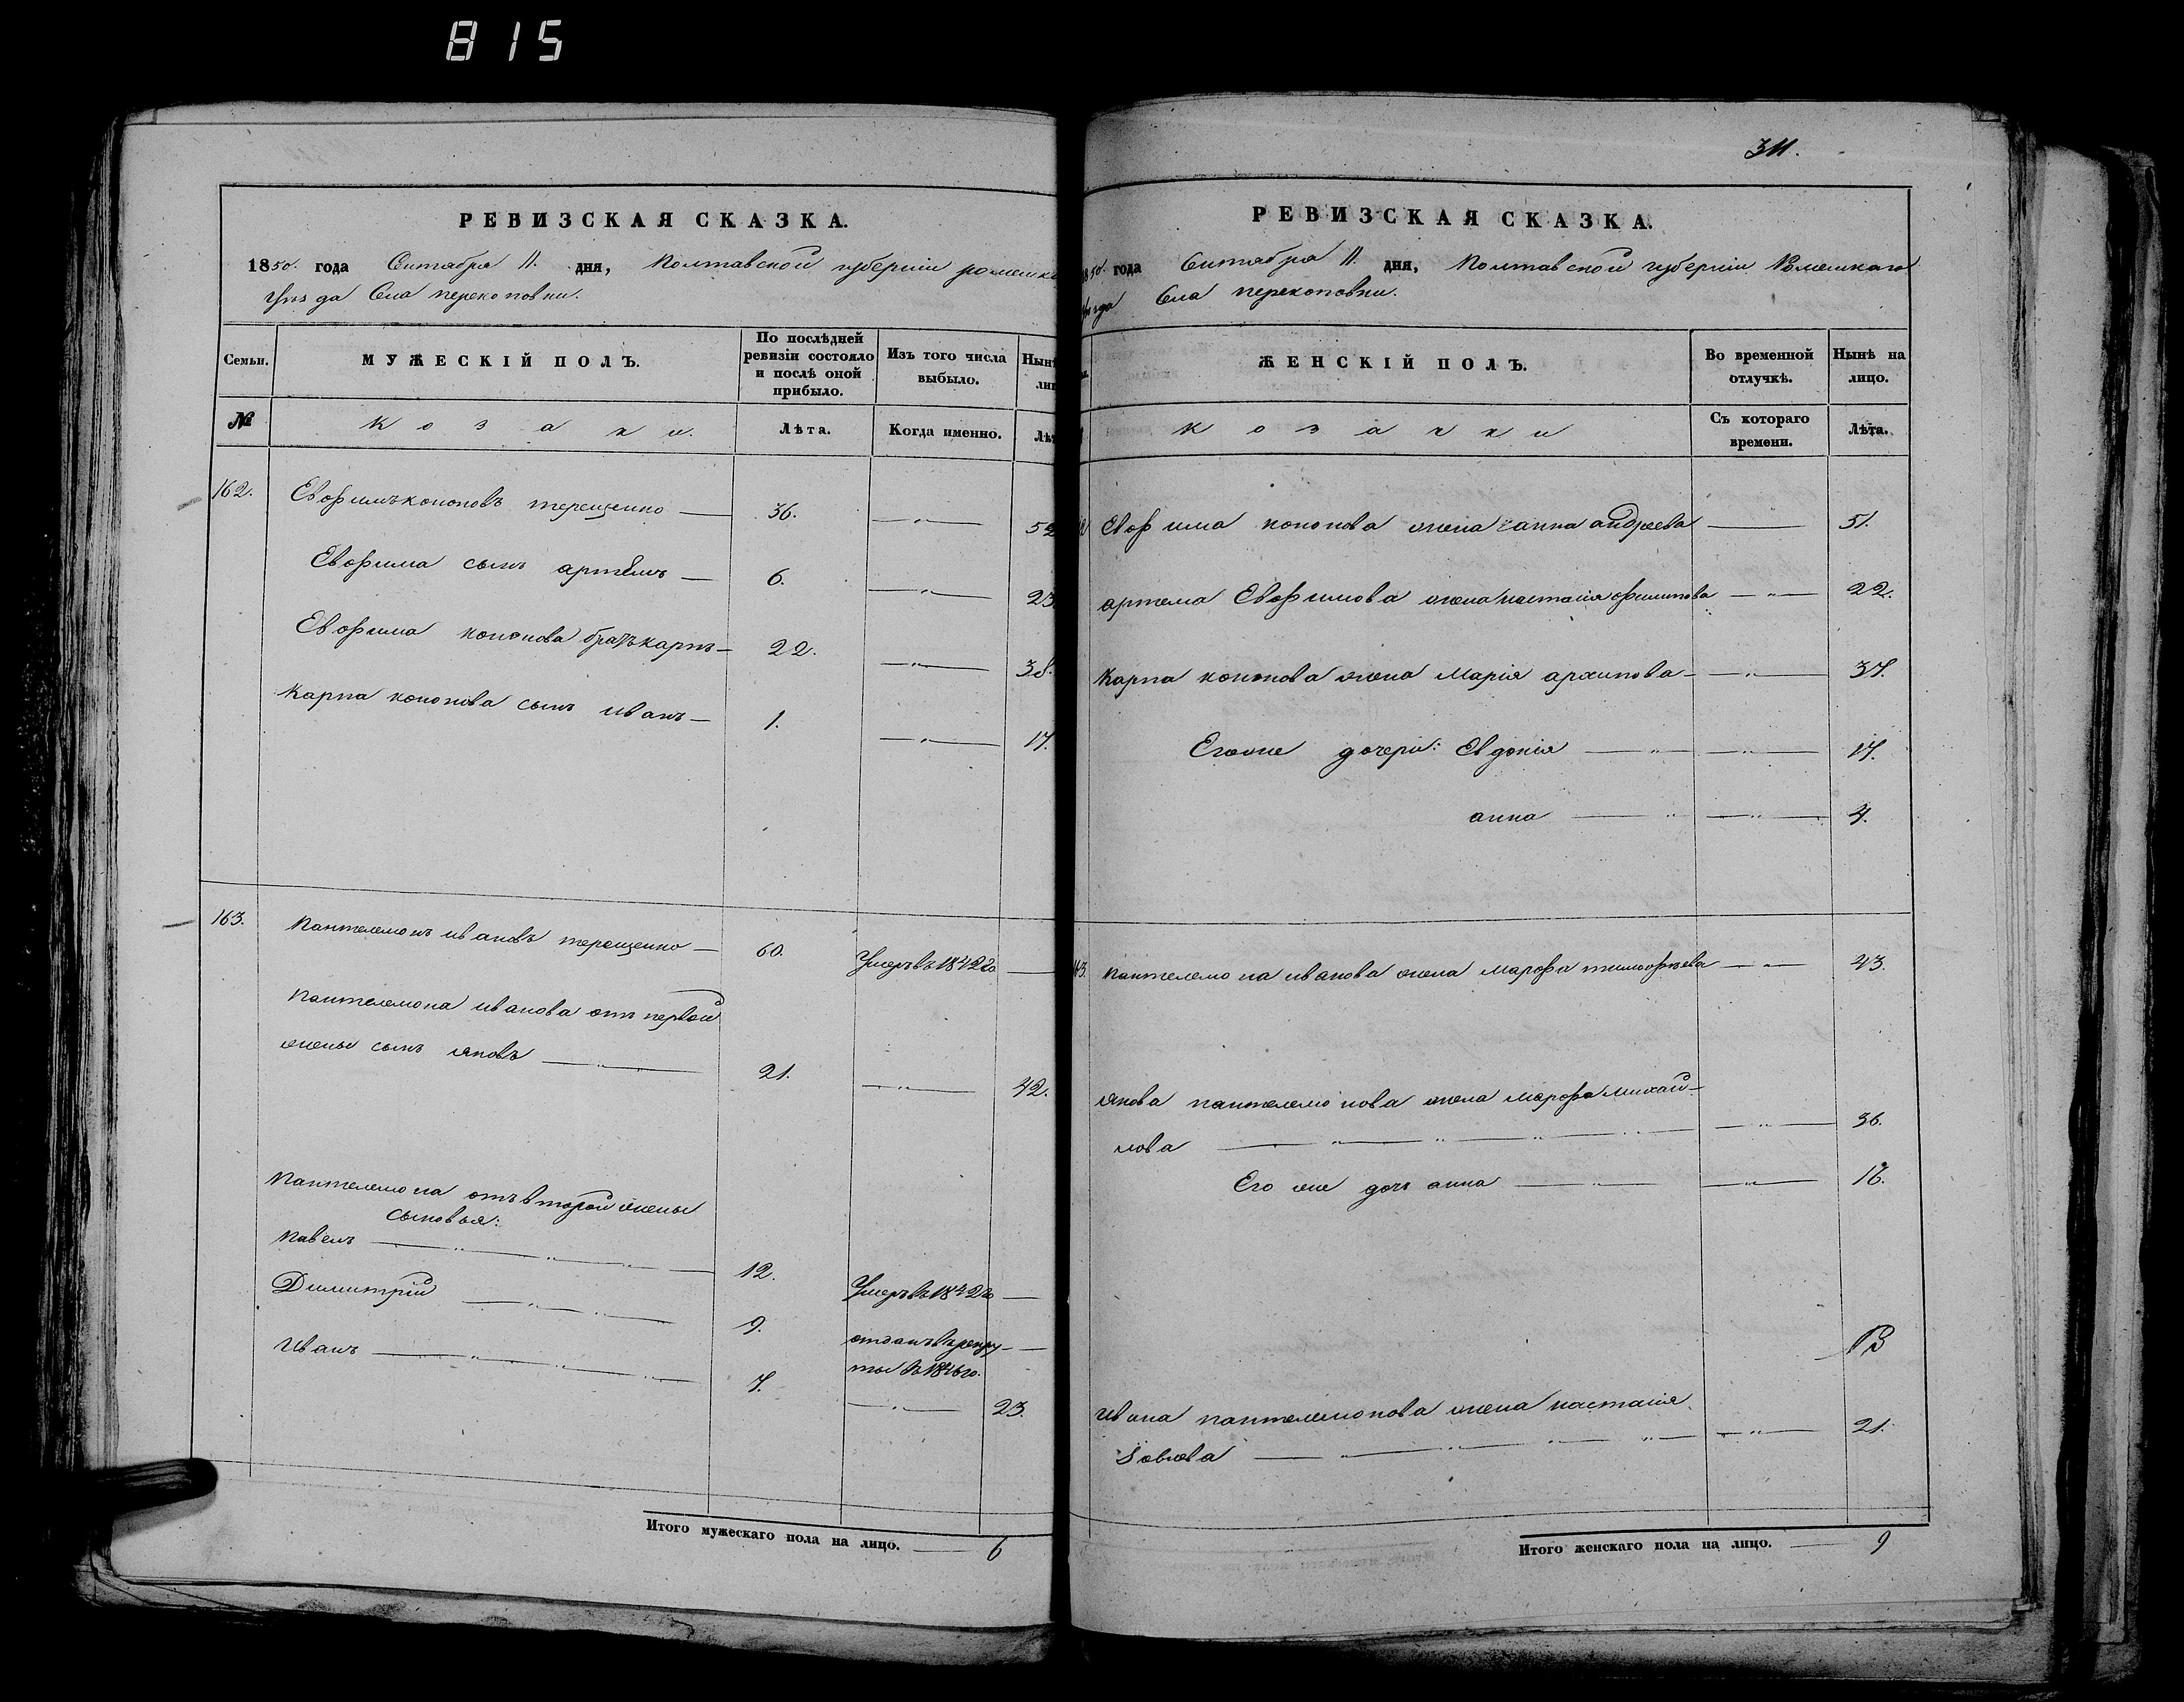 815
РЕВИЗСКАЯ СКАЗКА.
1850. года Сентября 11. дня, Полтавской губерніи ромешка
Уѣзда Села перекоповки.
Семьи.
МУЖЕСКІЙ ПОЛЪ.
По послѣдней ревизіи состояло и послѣ оной прибыло.
Изъ того числа выбыло.
Нынѣ
лиц
№
Козаки.
Лѣта.
Когда именно.
Лѣт
162. Евфимъ кононовъ терещенко — 36. — " — 52
Евфима сынъ артемъ — 6. — " — 23.
Евфима кононова братъ карпъ — 22. — " — 38.
Карпа кононова сынъ иванъ — 1. — " — 17.
163. Пантелемонъ ивановъ терещенко — 60. Умеръ въ 1842 го —
Пантелемона иванова отъ первой
жены сынъ яковъ — 21. — " — 42.
Пантелемона отъ второй жены
сыновья:
Павелъ — 12. Умеръ въ 1842 го —
Димитрій — 9. отданъ въ рекру —
ты въ 1846 го.
Иванъ — 7. — " — 23.
Итого мужескаго пола на лицо. — 6
311.
РЕВИЗСКАЯ СКАЗКА.
1850. года Сентября 11. дня, Полтавской губерніи Ромешкаго
уѣзда Села перекоповки.
ЖЕНСКІЙ ПОЛЪ.
Во временной отлучкѣ.
Нынѣ на лицо.
Козачки
Съ котораго времени.
Лѣта.
Евфима кононова жена анна андреева — 51.
артема Евфимова жена настасія филипова — " — 22.
Карпа кононова жена Марія архипова — " — 37.
Егоже дочери: Евдокія — " — 17.
анна — " — 4.
163. Пантелемона иванова жена марфа тимофѣева — 43.
якова пантелемонова жена марфа михай-
лова — " — 36.
Его же дочь анна — " — 16.
Ивана пантелемонова жена настасія
— " — 21.
Итого женскаго пола на лицо. — 9